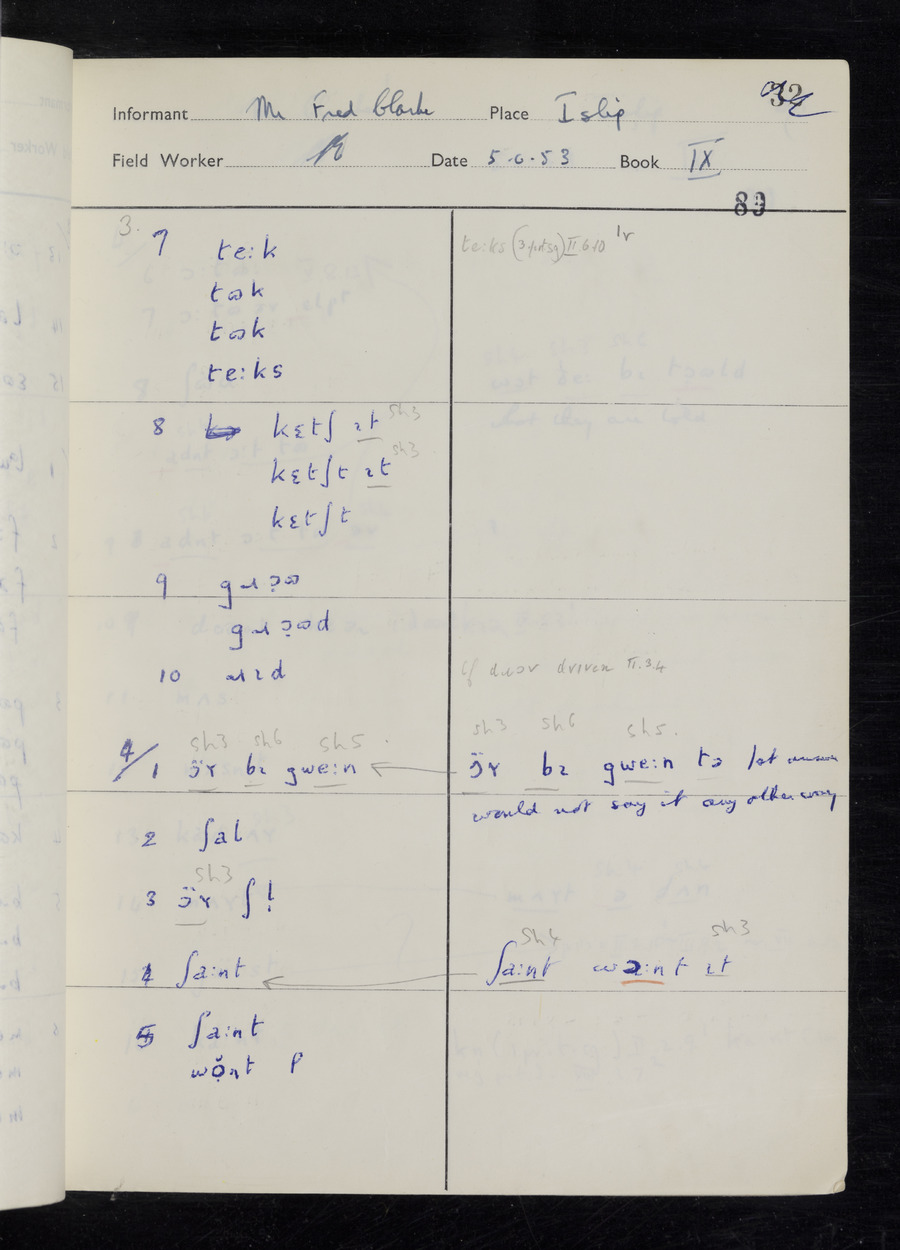 32
Informant Mr Fred Clarke Place Islip
Field Worker Date 5.6.53 Book IX
89
3.
7 te:k te:ks (3 ptsg) II 6 10 1r
tɷk
tɷk
te:ks
8 kɛtʃ ɪt sh3
kɛtʃt ɪt sh3
kɛtʃt
9 gɹɔɷ
gɹɔɷd
10 ɹɪd cf dɹɔv driven II.3.4
sh3 sh6 sh5. sh3 sh6 sh5.
4/ 1 ɔ̈ɤ bɪ gwe:n ɔ̈ɤ bɪ gwe:n tə
would not say it any other way
2 ʃal
sh3
3 ɔ̈ɤ ʃl̩
sh4 sh3
4 ʃa:nt ʃa:nt wɔ:nt ɪt
5 ʃa:nt
wɔ̣nt P